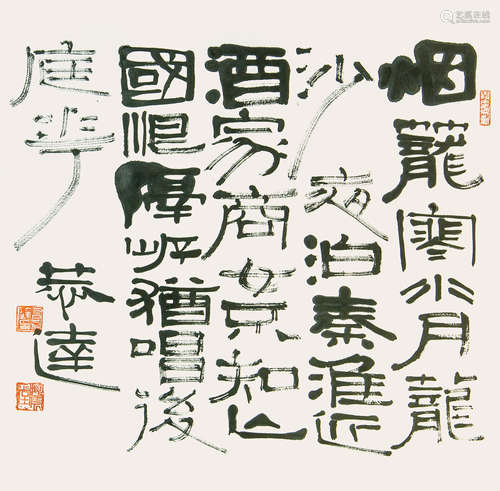 烟籠寒水月籠
沙夜泊秦淮近
酒家商女不知亡
國恨隔岸猶唱後
庭華
恭達